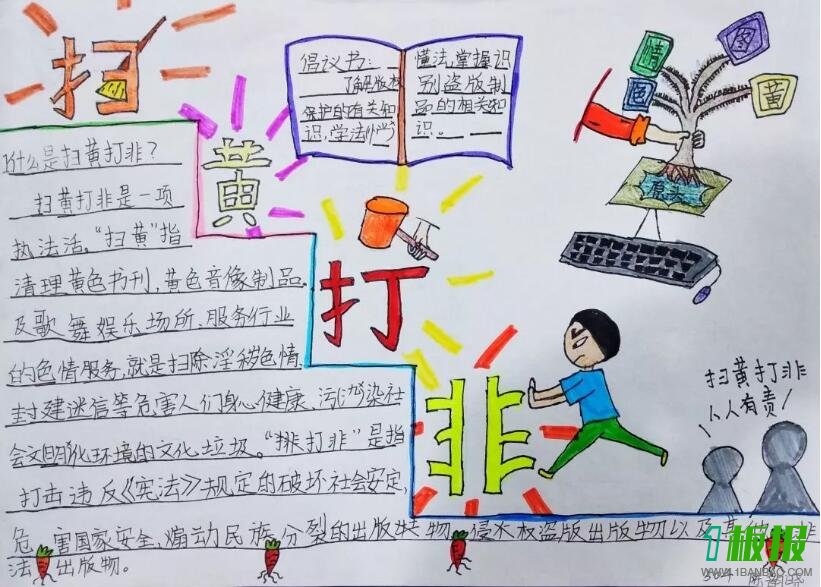 扫
黄
打
非
倡议书:
了解版权
保护的有关知
识,学法
懂法,掌握识
别盗版制
品的相关知
识。
情
图
色
黄
源头
什么是扫黄打非?
扫黄打非是一项
执法活。“扫黄”指
清理黄色书刊,黄色音像制品,
及歌舞娱乐场所、服务行业
的色情服务,就是扫除淫秽色情、
封建迷信等危害人们身心健康、污染社
会文明化环境的文化垃圾。“打非”是指
打击违反《宪法》规定的破坏社会安定,
危害国家安全,煽动民族分裂的出版物,侵权盗版出版物以及其他非
法出版物。
扫黄打非
人人有责
1板报
WWW.1BANBAO.COM